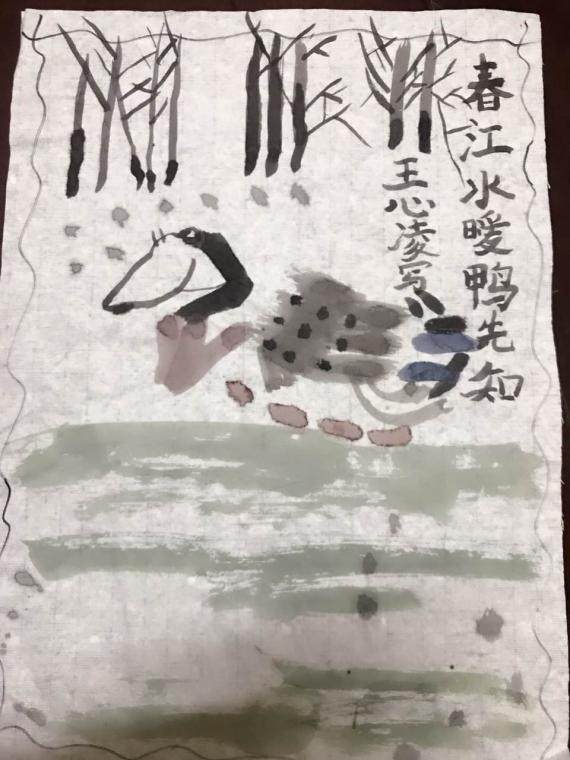 春江水暖鸭先知
王心凌写